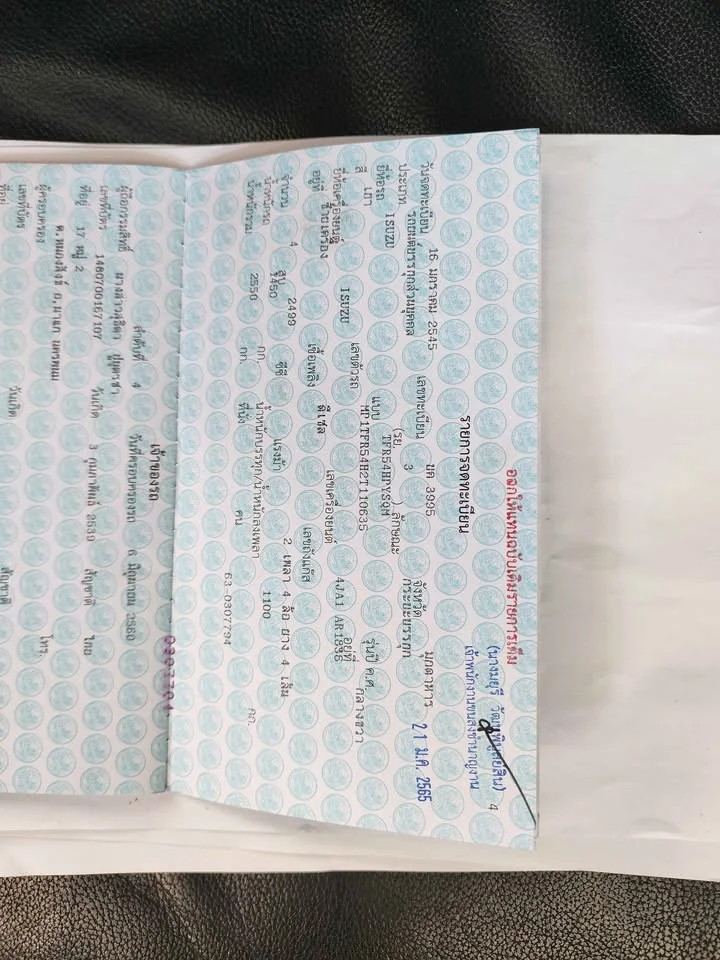 ออกให้แทนฉบับเดิมรายการเดิม
เจ้าพนักงานขนส่งชำนาญงาน
4
21 ม.ค. 2565
รายการจดทะเบียน
วันจดทะเบียน 16 มกราคม 2545 เลขทะเบียน บค 3995 จังหวัด มุกดาหาร
ประเภท รถยนต์บรรทุกส่วนบุคคล (รย. 3 ) ลักษณะ กระบะบรรทุก
ยี่ห้อรถ ISUZU แบบ TFR54HPYSQM รุ่นปี ค.ศ.
สี เทา เลขตัวรถ MP1TFR54H2T110635 อยู่ที่ กลางขวา
ยี่ห้อเครื่องยนต์ ISUZU เลขเครื่องยนต์ 4JA1
อยู่ที่ ซ้ายเครื่อง เชื้อเพลิง ดีเซล เลขถังแก๊ส
จำนวน 4 สูบ 2499 ซีซี แรงม้า 2 เพลา 4 ล้อ ยาง 4 เส้น
น้ำหนักรถ 1450 กก. น้ำหนักบรรทุก/น้ำหนักลงเพลา 1100 กก.
น้ำหนักรวม 2550 กก. ที่นั่ง คน
63-0307794
เจ้าของรถ
ลำดับที่ 4 วันที่ครอบครองรถ 6 มิถุนายน 2560
ผู้ถือกรรมสิทธิ์
เลขที่บัตร 1480700167107 วันเกิด 3 กุมภาพันธ์ 2539 สัญชาติ ไทย
ที่อยู่ 17 หมู่ 2
โทร.
ผู้ครอบครอง
เลขที่บัตร วันเกิด สัญชาติ
ที่อยู่